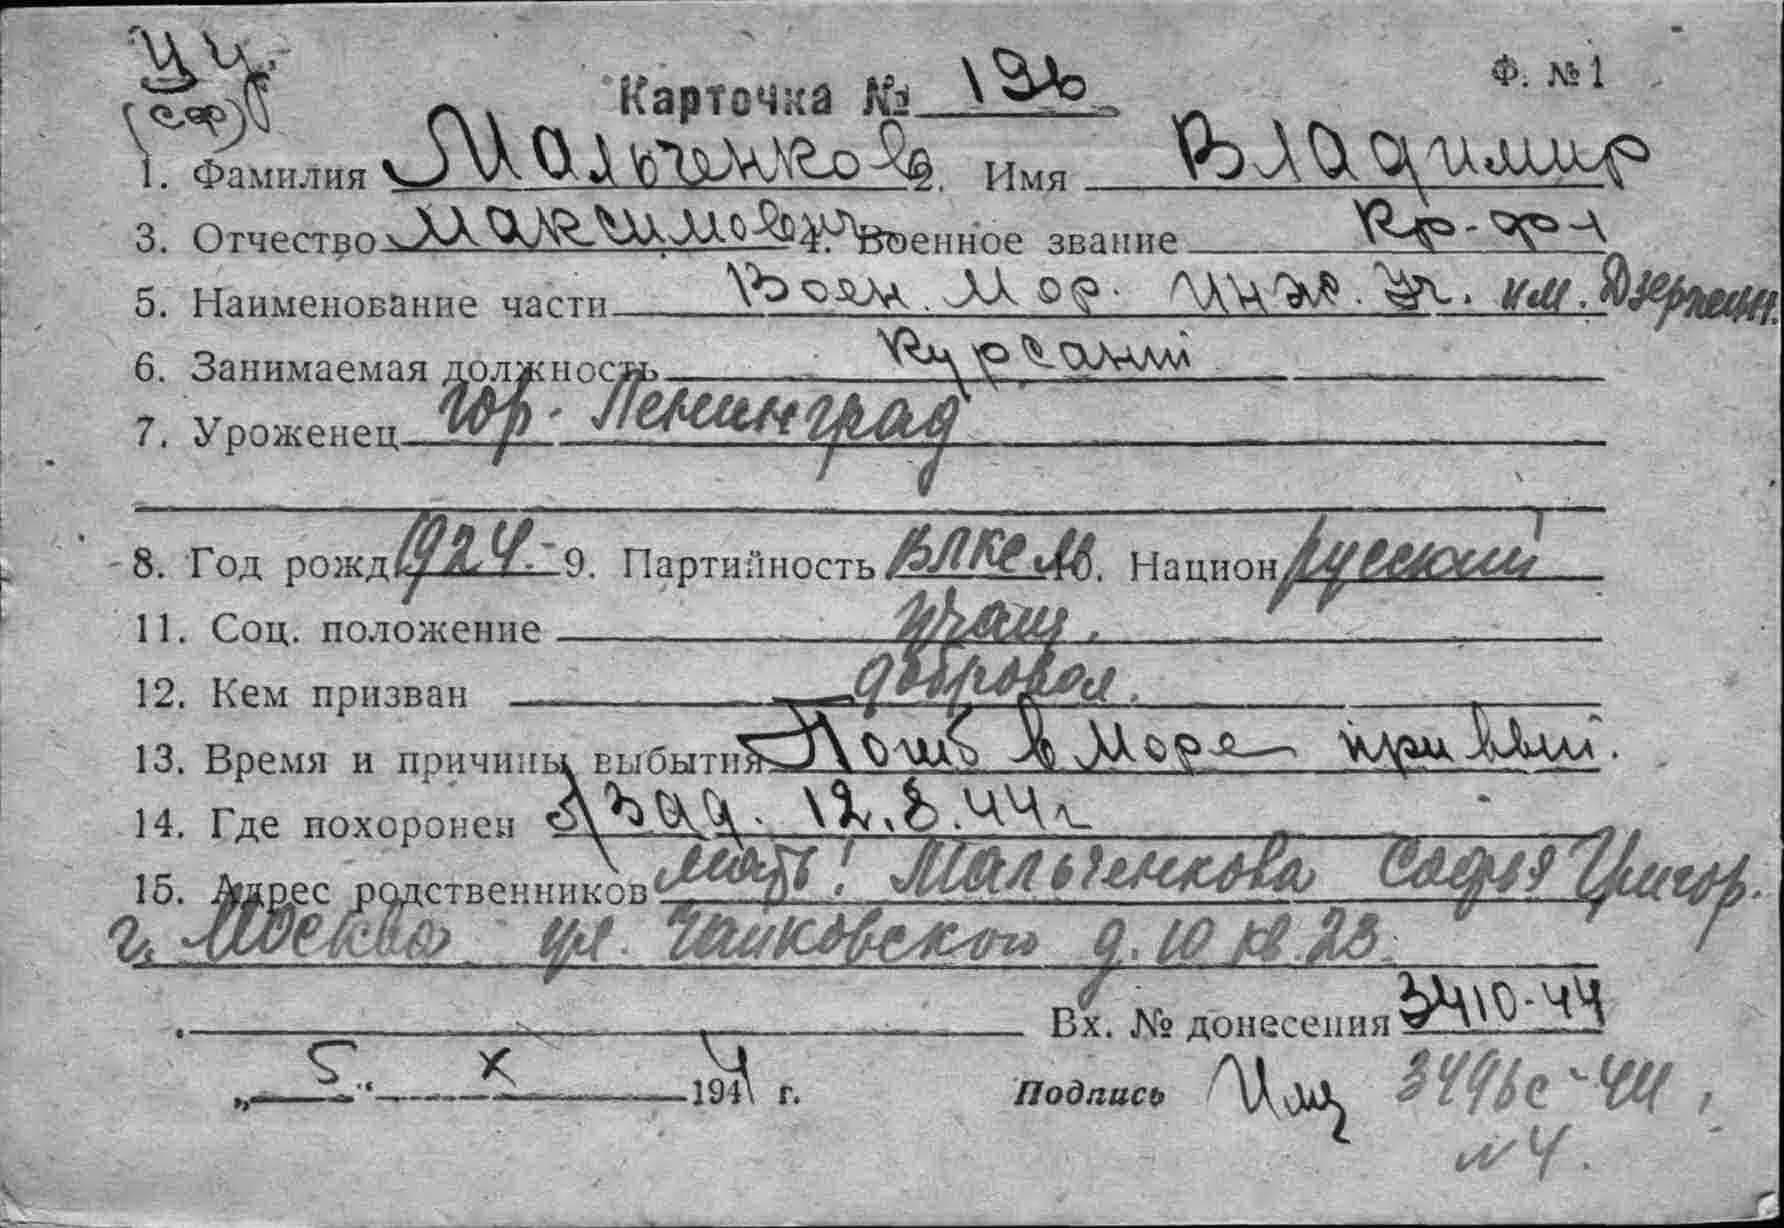 УЧ.
(СФ)
Ф. №1
Карточка № 196
1. Фамилия Мальченков 2. Имя Владимир
3. Отчество Максимович 4. Военное звание Кр-фл
5. Наименование части Воен. Мор. Инж. Уч. им. Дзержинск.
6. Занимаемая должность Курсант
7. Уроженец гор. Ленинград
8. Год рожд 1924. 9. Партийность ВЛКСМ 10. Национ русский
11. Соц. положение учащ.
12. Кем призван добровол.
13. Время и причины выбытия Погиб в море при вып.
14. Где похоронен б/зад. 12.8.44г
15. Адрес родственников мать: Мальченкова Софья Григор.
г. Москва ул. Чайковского д. 10 кв. 23.
Вх. № донесения 3410-44
„5“ X 1944 г. Подпись 3496с-44
№4.